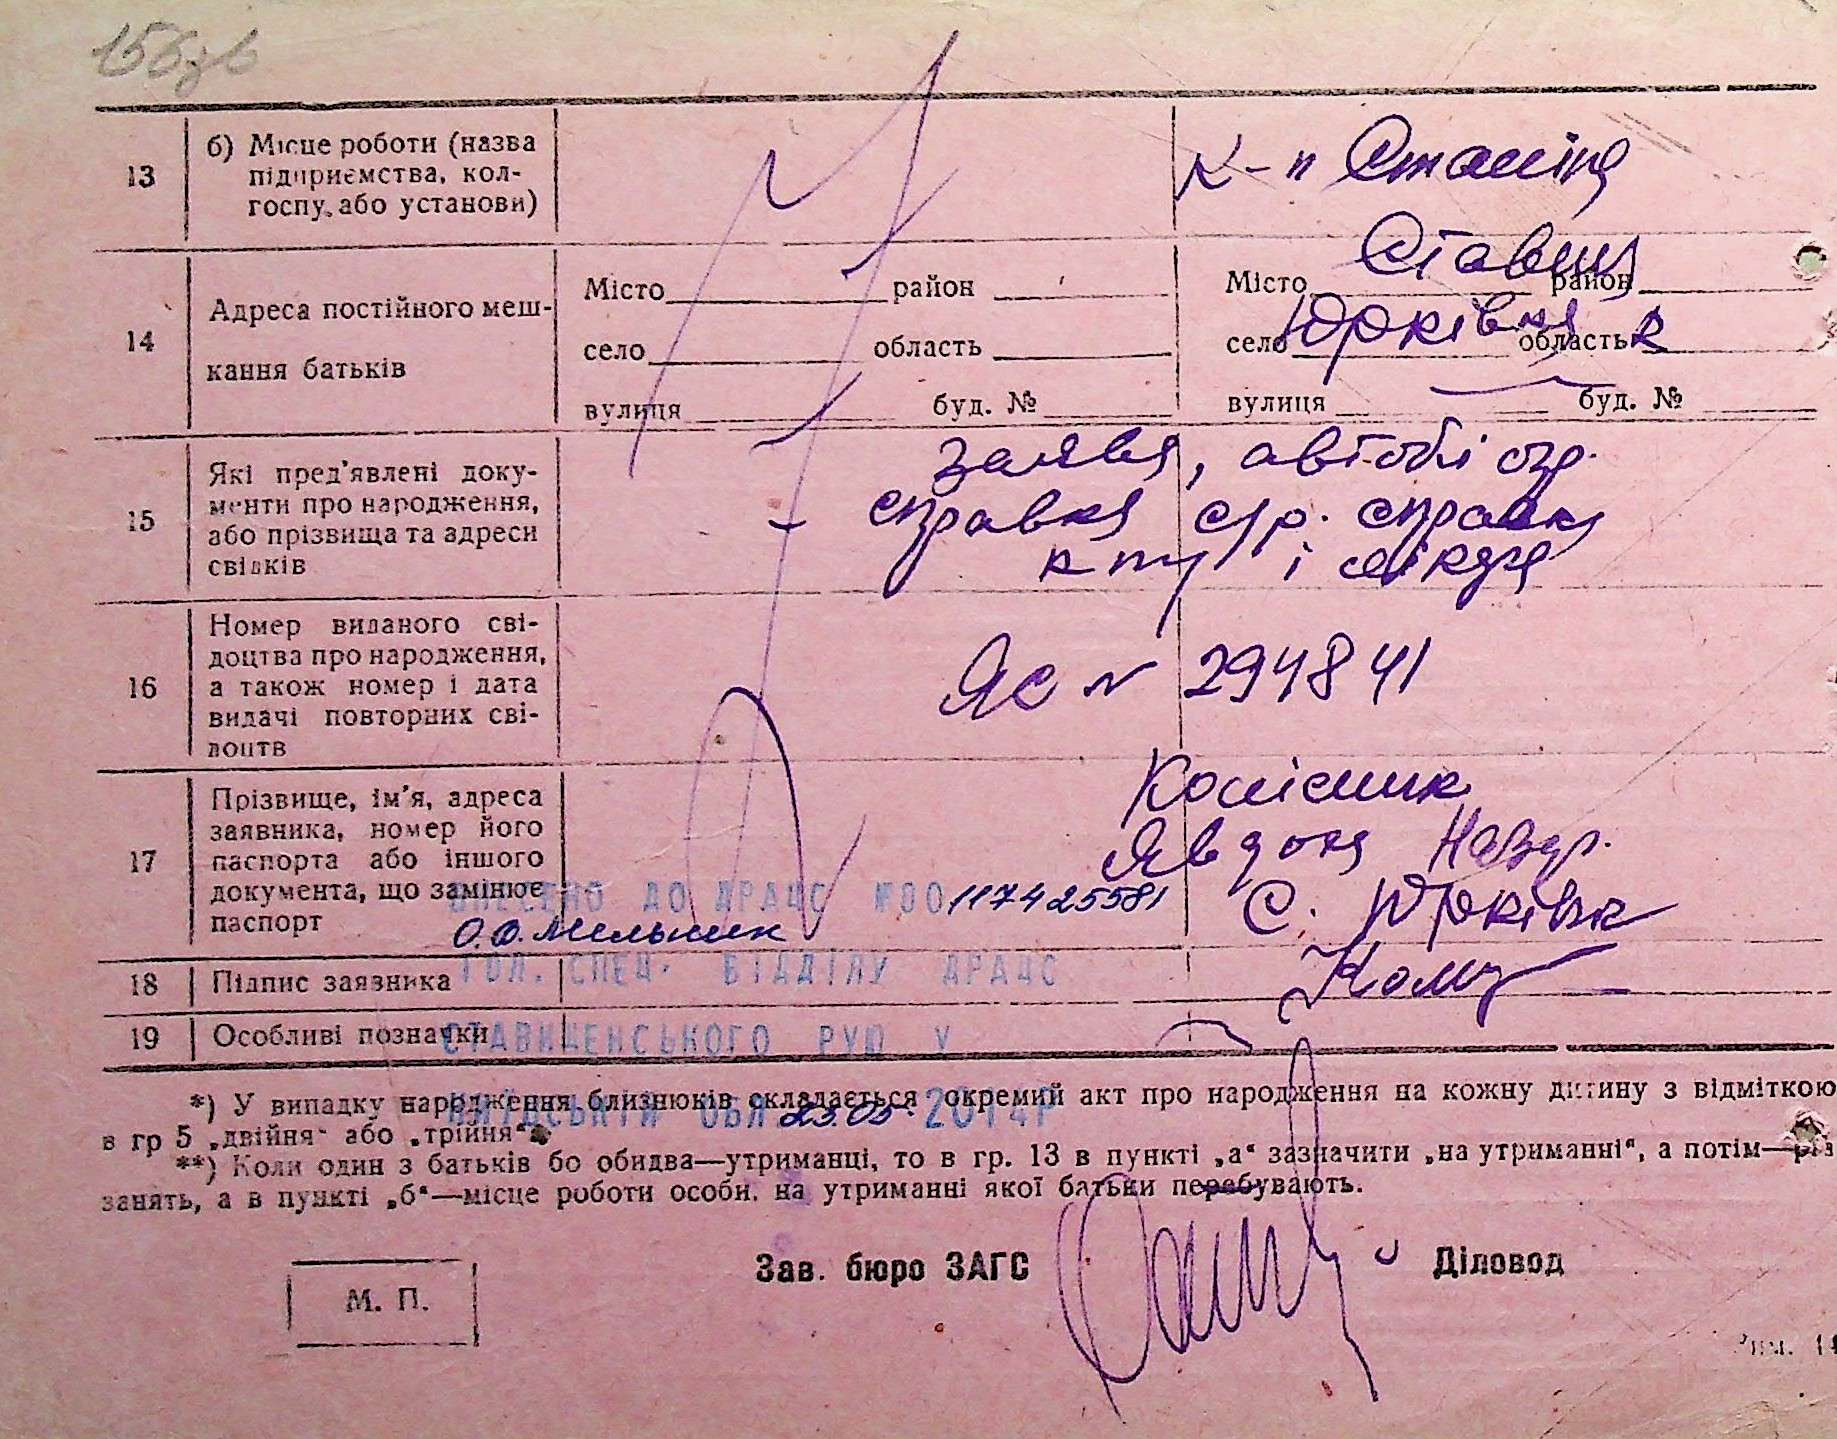 156зв
13
б) Місце роботи (назва
підприємства, кол-
госпу, або установи)
к-п Сталіна
14
Адреса постійного меш-
кання батьків
Місто район
село область
вулиця буд. №
Місто Ставищ район
село Юрківка область К
вулиця буд. №
15
Які пред'явлені доку-
менти про народження,
або прізвища та адреси
свідків
заява, автобіогр.
справка с/р. справка
і свідки
16
Номер виданого сві-
доцтва про народження,
а також номер і дата
видачі повторних сві-
доцтв
ЯС № 294841
17
Прізвище, ім'я, адреса
заявника, номер його
паспорта або іншого
документа, що замінює
паспорт
Колісник
Явдоха Назар.
с. Юрківка
ВНЕСЕНО ДО ДРАЦС №00117425581
О.В. Мельник
ГОЛ. СПЕЦ. ВІДДІЛУ ДРАЦС
СТАВИЩЕНСЬКОГО РУЮ У
КИЇВСЬКІЙ ОБЛ 23.05. 2014Р
18
Підпис заявника
19
Особливі позначки
*) У випадку народження близнюків складається окремий акт про народження на кожну дитину з відміткою
в гр 5 „двійня“ або „трійня“.
**) Коли один з батьків бо обидва—утриманці, то в гр. 13 в пункті „а“ зазначити „на утриманні“, а потім—рід
занять, а в пункті „б“—місце роботи особи, на утриманні якої батьки перебувають.
Зав. бюро ЗАГС
Діловод
М. П.